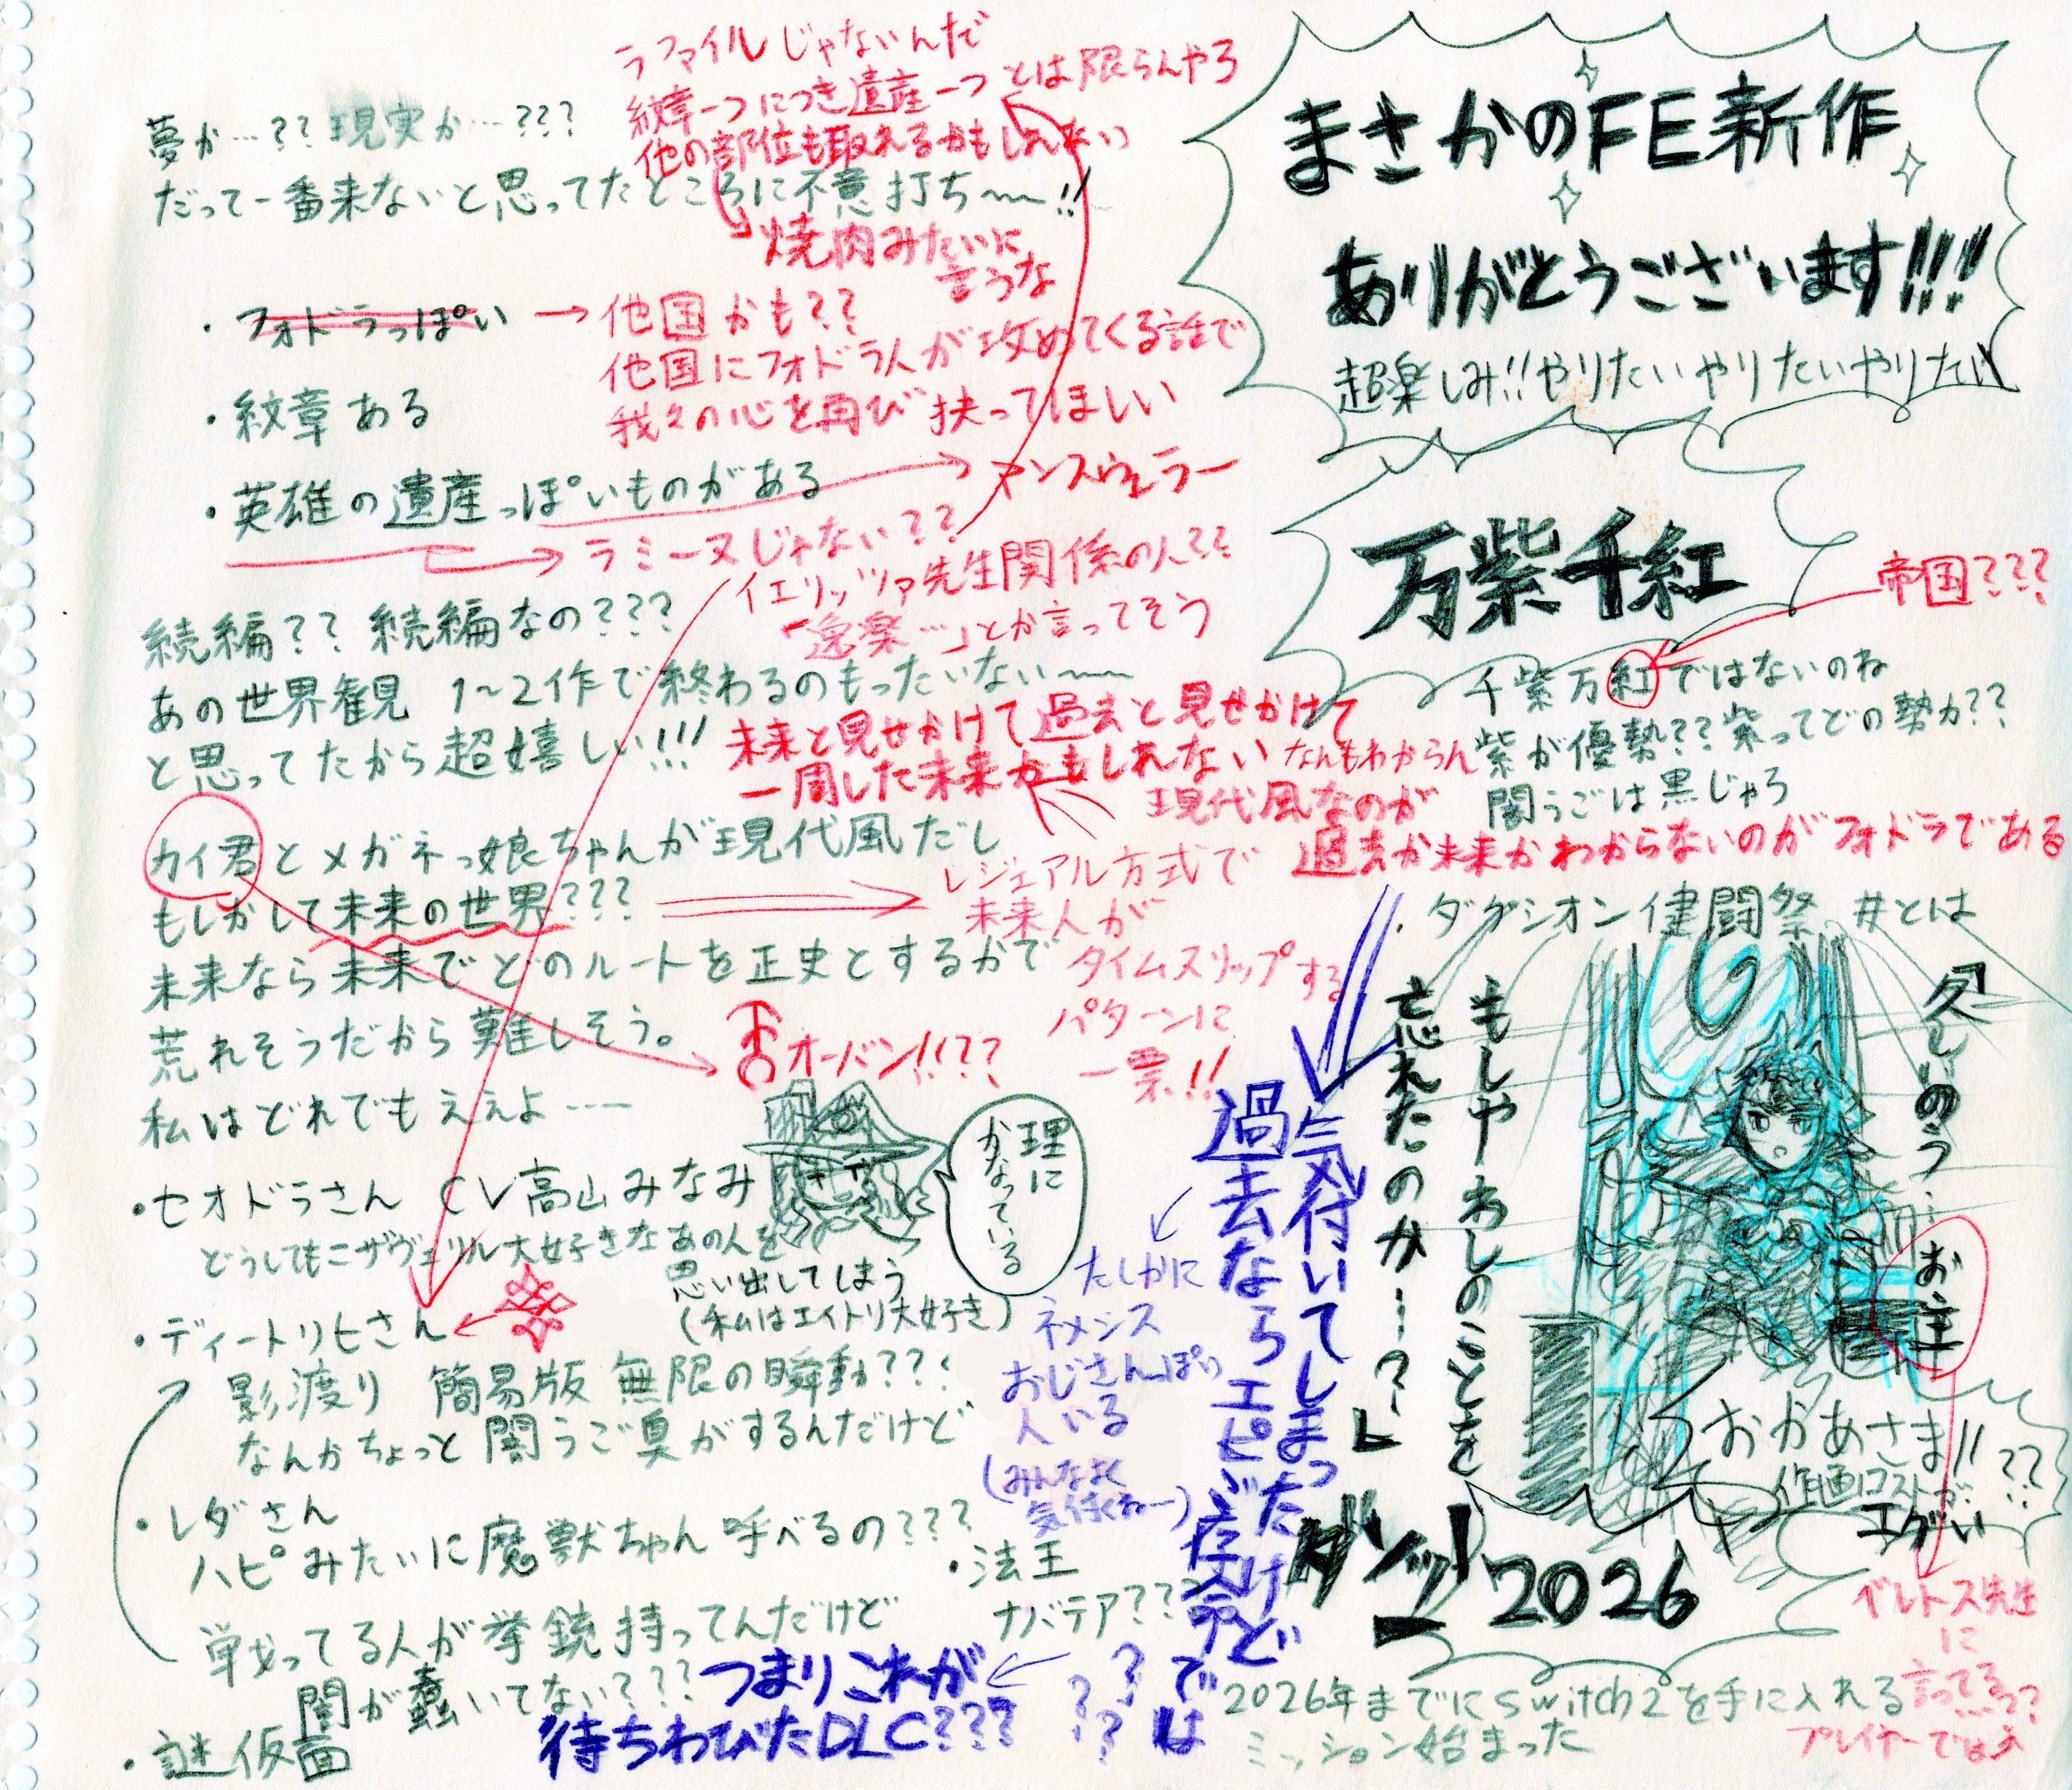 まさかのFE新作
ありがとうございます!!!
超楽しみ!!やりたいやりたいやりたい
万紫千紅
帝国???
千紫万紅ではないのね
紫が優勢??紫ってどの勢力??
闇うごは黒じゃろ
過去か未来かわからないのがフォドラである
・ダグシオン健闘祭 #とは
「久しいのう…お主
もしやわしのことを
忘れたのか…?」
おかあさま!!
作画コストが…??
エグい
ベレトス先生
に
言ってる??
プレイヤーでは?
ダンッ!
2026
2026年までにSwitch2を手に入れる
ミッション始まった
ラファイルじゃないんだ
紋章一つにつき遺産一つとは限らんやろ
他の部位も取れるかもしれない
焼肉みたいに
言うな
夢か…??現実か…???
だって一番来ないと思ってたところに不意打ち〜〜!!
・フォドラっぽい
→他国かも??
他国にフォドラ人が攻めてくる話で
我々の心を再び抉ってほしい
・紋章ある
・英雄の遺産っぽいものがある
→ラミーヌじゃない??
イエリッツァ先生関係の人??
「逸楽…」とか言ってそう
続編??続編なの???
あの世界観 1〜2作で終わるのもったいない〜〜
と思ってたから超嬉しい!!!
未来と見せかけて過去と見せかけて
一周した未来かもしれない なんもわからん
現代風なのが
カイ君とメガネっ娘ちゃんが現代風だし
もしかして未来の世界???
レジェアル方式で
未来人が
タイムスリップする
パターンに
一票!!
未来なら未来でどのルートを正史とするかで
荒れそうだから難しそう。
私はどれでもええよ……
オーバン!!??
理に
かなっている
・セオドラさん CV高山みなみ
どうしてもニザヴェリル大好きなあの人を
思い出してしまう
(私はエイトリ大好き)
・ディートリヒさん
影渡り 簡易版 無限の瞬動???
なんかちょっと闇うご臭がするんだけど
・レダさん
ハピみたいに魔獣ちゃん呼べるの???
戦ってる人が拳銃持ってんだけど
闇が蠢いてない???
・謎仮面
・法王
ナバテア???
気付いてしまったけど
過去ならエピゾ存命では
???
たしかに
ネメシス
おじさんっぽい
人いる
(みんなよく
気付くねー)
つまりこれが
待ちわびたDLC???